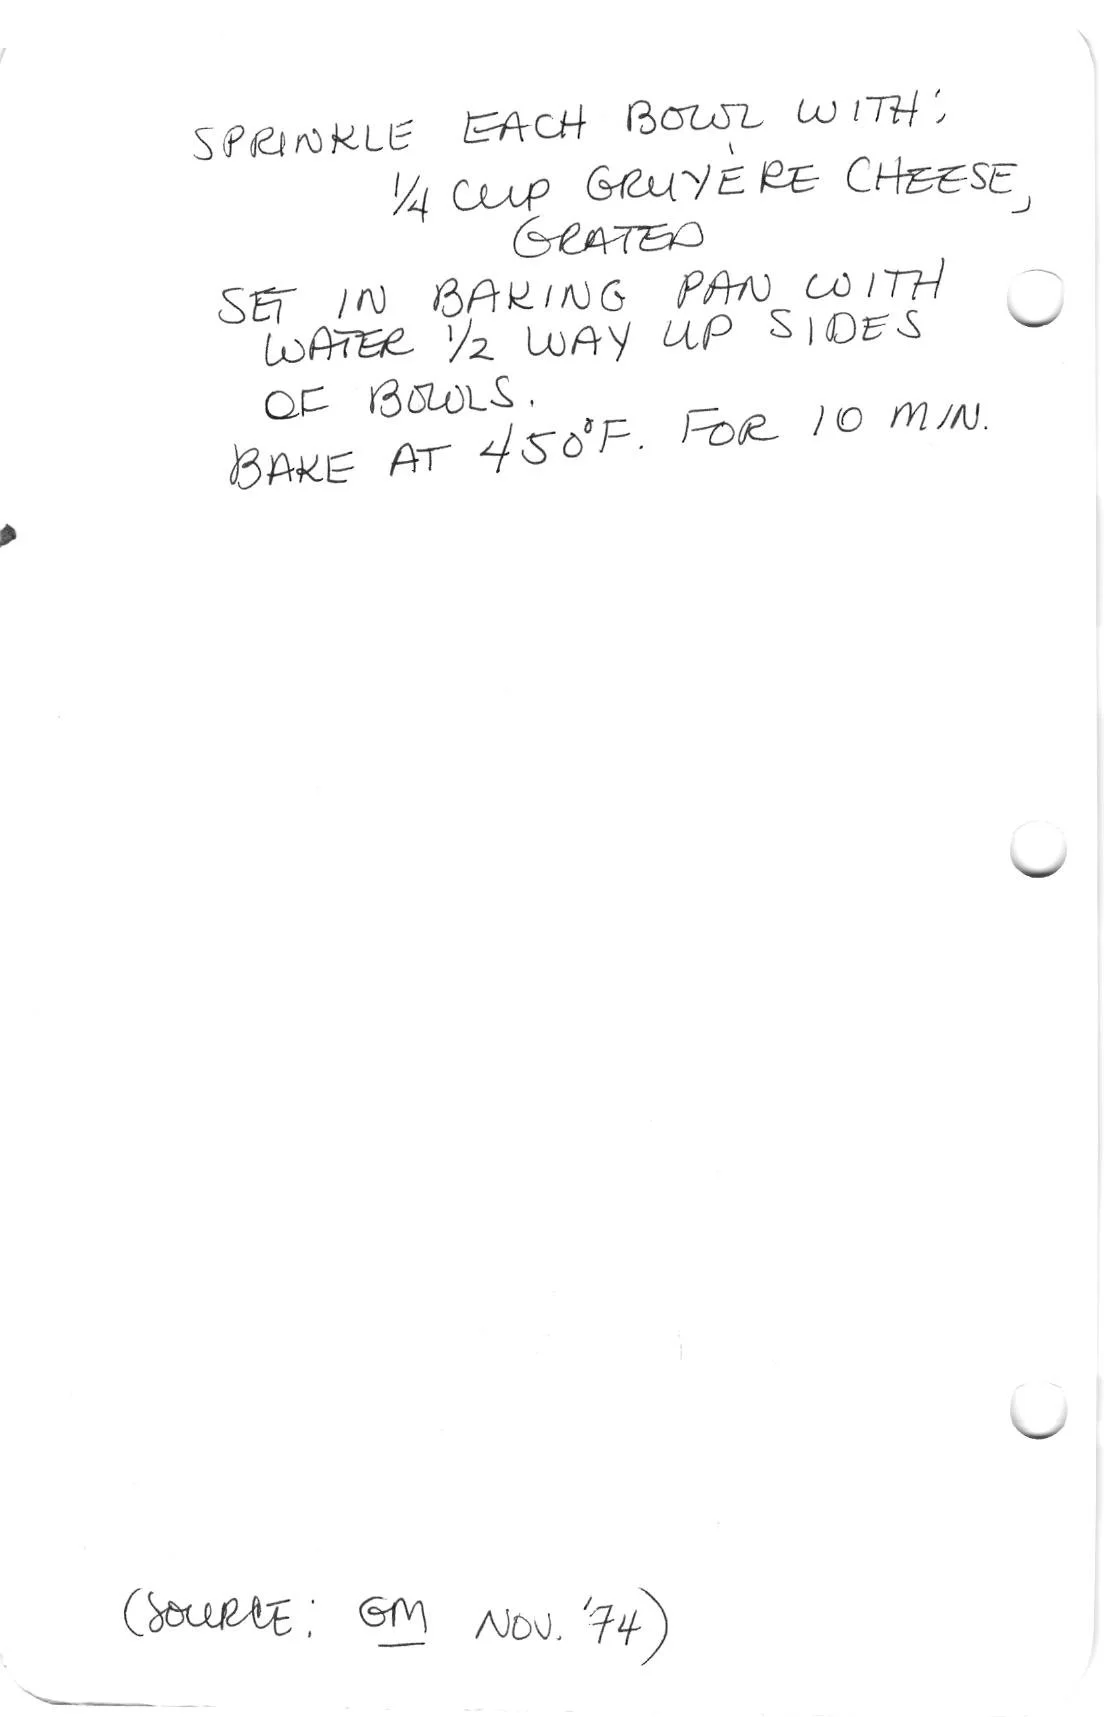 SPRINKLE EACH BOWL WITH:
1/4 CUP GRUYÈRE CHEESE,
GRATED
SET IN BAKING PAN WITH
WATER 1/2 WAY UP SIDES
OF BOWLS.
BAKE AT 450°F. FOR 10 MIN.
(SOURCE: GM NOV. '74)